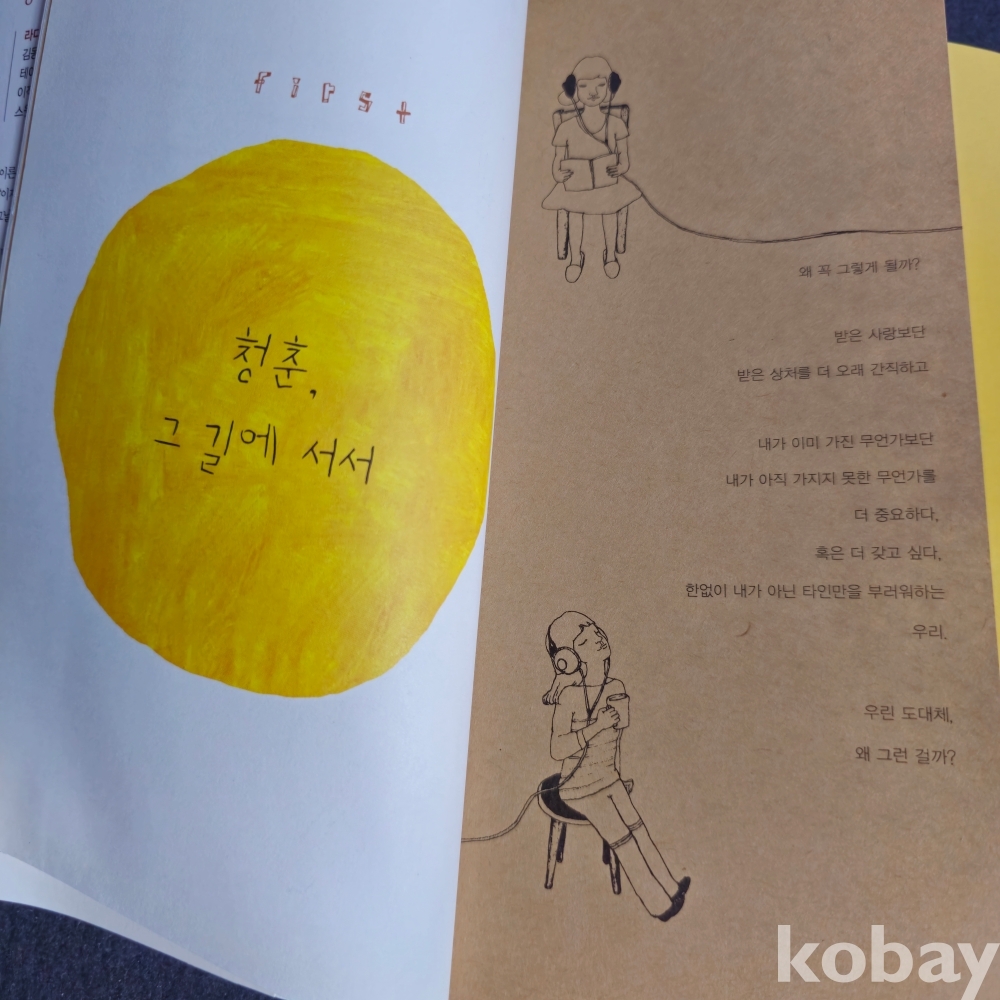 first
청춘,
그 길에 서서
왜 꼭 그렇게 될까?
받은 사랑보단
받은 상처를 더 오래 간직하고
내가 이미 가진 무언가보단
내가 아직 가지지 못한 무언가를
더 중요하다,
혹은 더 갖고 싶다,
한없이 내가 아닌 타인만을 부러워하는
우리.
우린 도대체,
왜 그런 걸까?
kobay